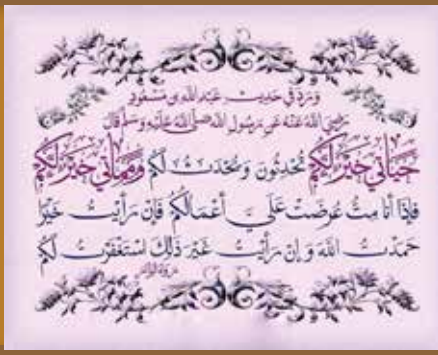 وَرَدَ فِي حَدِيثِ عَبْدِ اللهِ بنِ مَسْعُودٍ
رَضِيَ اللهُ عَنْهُ عَنْ رَسُولِ اللهِ صَلَّى اللهُ عَلَيْهِ وَسَلَّمَ قَالَ
حَيَاتِي خَيْرٌ لَكُمْ تُحْدِثُونَ وَيُحْدَثُ لَكُمْ وَمَمَاتِي خَيْرٌ لَكُمْ
فَإِذَا أَنَا مِتُّ عُرِضَتْ عَلَيَّ أَعْمَالُكُمْ فَإِنْ رَأَيْتُ خَيْرًا
حَمِدْتُ اللهَ وَإِنْ رَأَيْتُ غَيْرَ ذَلِكَ اسْتَغْفَرْتُ لَكُمْ